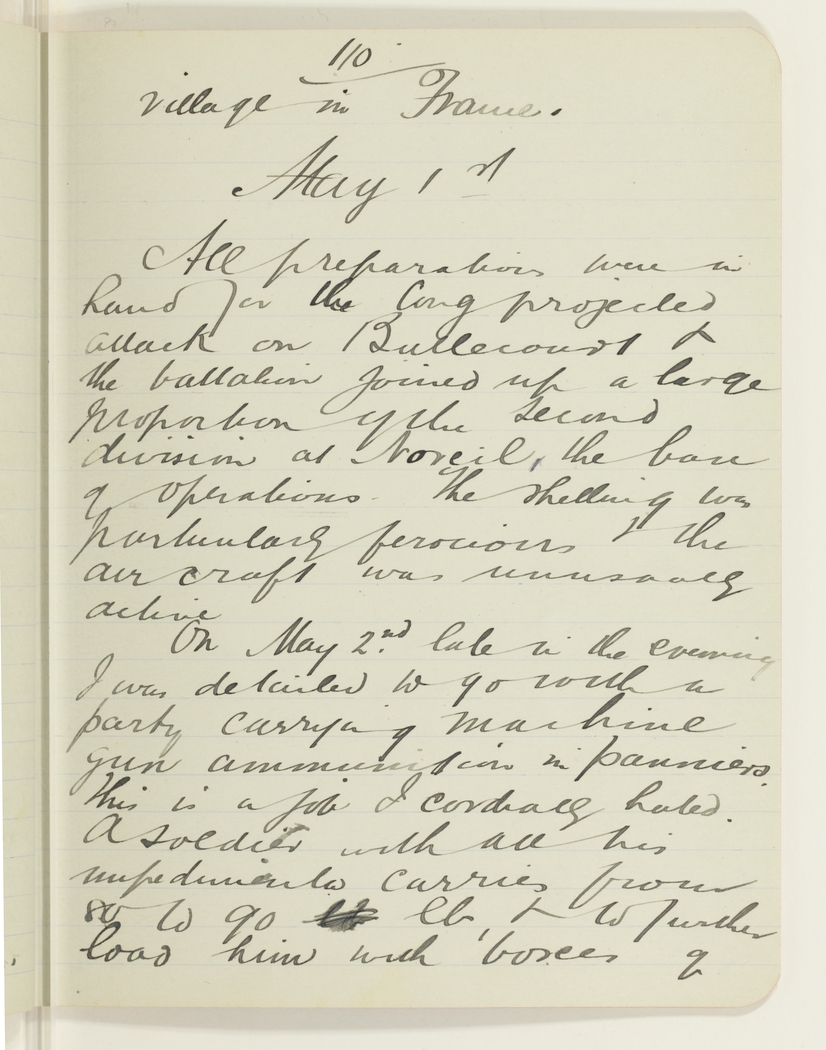 110
village in France.
May 1st
All preparations were in
hand for the long projected
attack on Bullecourt &
the battalion joined up a large
proportion of the second
division at Noreil, the base
of operations. The shelling was
particularly ferocious & the
air craft was unusually
active
On May 2nd late in the evening
I was detailed to go with a
party carrying machine
gun ammunition in panniers.
This is a job I cordially hated.
A soldier with all his
impedimenta carries from
80 to 90 lb, & to further
load him with boxes of